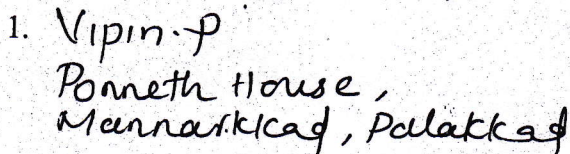 1. Vipin.P
Ponneth House,
Mannarkkad, Palakkad